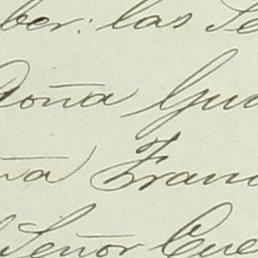 ber: las Se
Doña Gu
ña Fran
Señor Cue